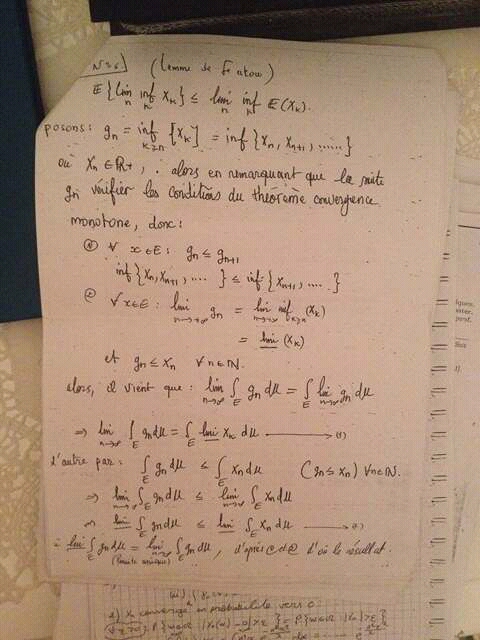 N°26. (Lemme de Fatou)
E{lim_n inf_k X_k} ≤ lim_n inf_k E(X_k).
posons: g_n = inf_{k≥n} {X_k} = inf {X_n, X_{n+1}, ......}
où X_n ∈ ℝ+, . alors en remarquant que la suite
g_n vérifier les conditions du théorème convergence
monotone, donc:
① ∀ x∈E: g_n ≤ g_{n+1}
inf{X_n, X_{n+1}, ....} ≤ inf{X_{n+1}, ....}
② ∀x∈E: lim_{n→+∞} g_n = lim_{n→∞} inf_{k≥n} (X_k)
= lim (X_k)
et g_n ≤ X_n ∀n∈ℕ.
alors, il vient que: lim_{n→∞} ∫_E g_n dμ = ∫_E lim_{n→∞} g_n dμ
⇒ lim_{n→∞} ∫_E g_n dμ = ∫_E lim X_k dμ ———→(1)
d'autre par: ∫_E g_n dμ ≤ ∫_E X_n dμ (g_n ≤ X_n) ∀n∈ℕ.
⇒ lim_{n→∞} ∫_E g_n dμ ≤ lim_{n→∞} ∫_E X_n dμ
lim ∫_E g_n dμ ≤ lim ∫_E X_n dμ ———→
lim ∫_E g_n dμ = lim_{n→∞} ∫_E g_n dμ, d'après ① et ② d'où le résultat.
(limite unique)
2) X_n converge en probabilité vers 0: